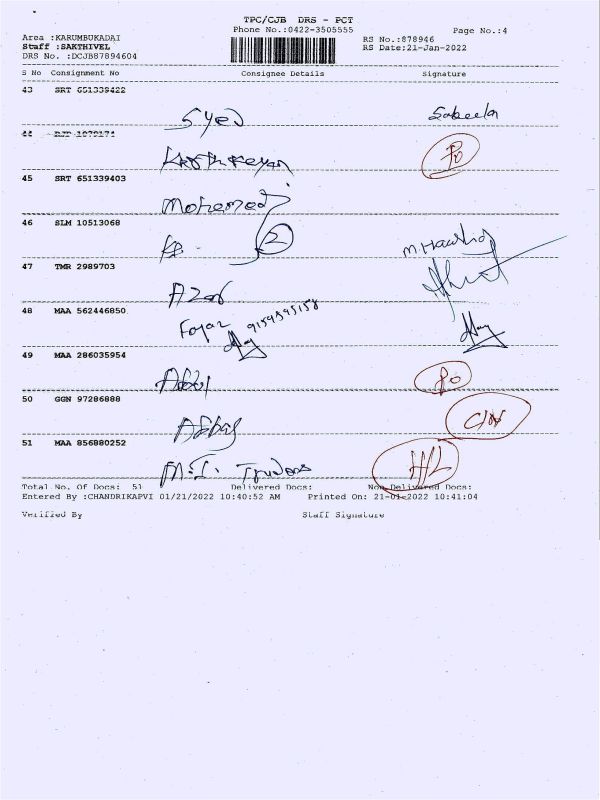 TPC/CJB DRS - PCT
Phone No.:0422-3505555
Page No.:4
Area :KARUMBUKADAI
RS No.:878946
Staff :SAKTHIVEL
RS Date:21-Jan-2022
DRS No. :DCJB87894604
S No Consignment No Consignee Details Signature
43 SRT 651339422
Syed Sabeela
44
45 SRT 651339403
Mohamed
46 SLM 10513068
2
47 TMR 2989703
Azar
48 MAA 562446850
49 MAA 286035954
Abdul
50 GGN 97286888
Abbas
51 MAA 856880252
Total No. Of Docs: 51 Delivered Docs: Non-Delivered Docs:
Entered By :CHANDRIKAPVI 01/21/2022 10:40:52 AM Printed On: 21-01-2022 10:41:04
Verified By Staff Signature